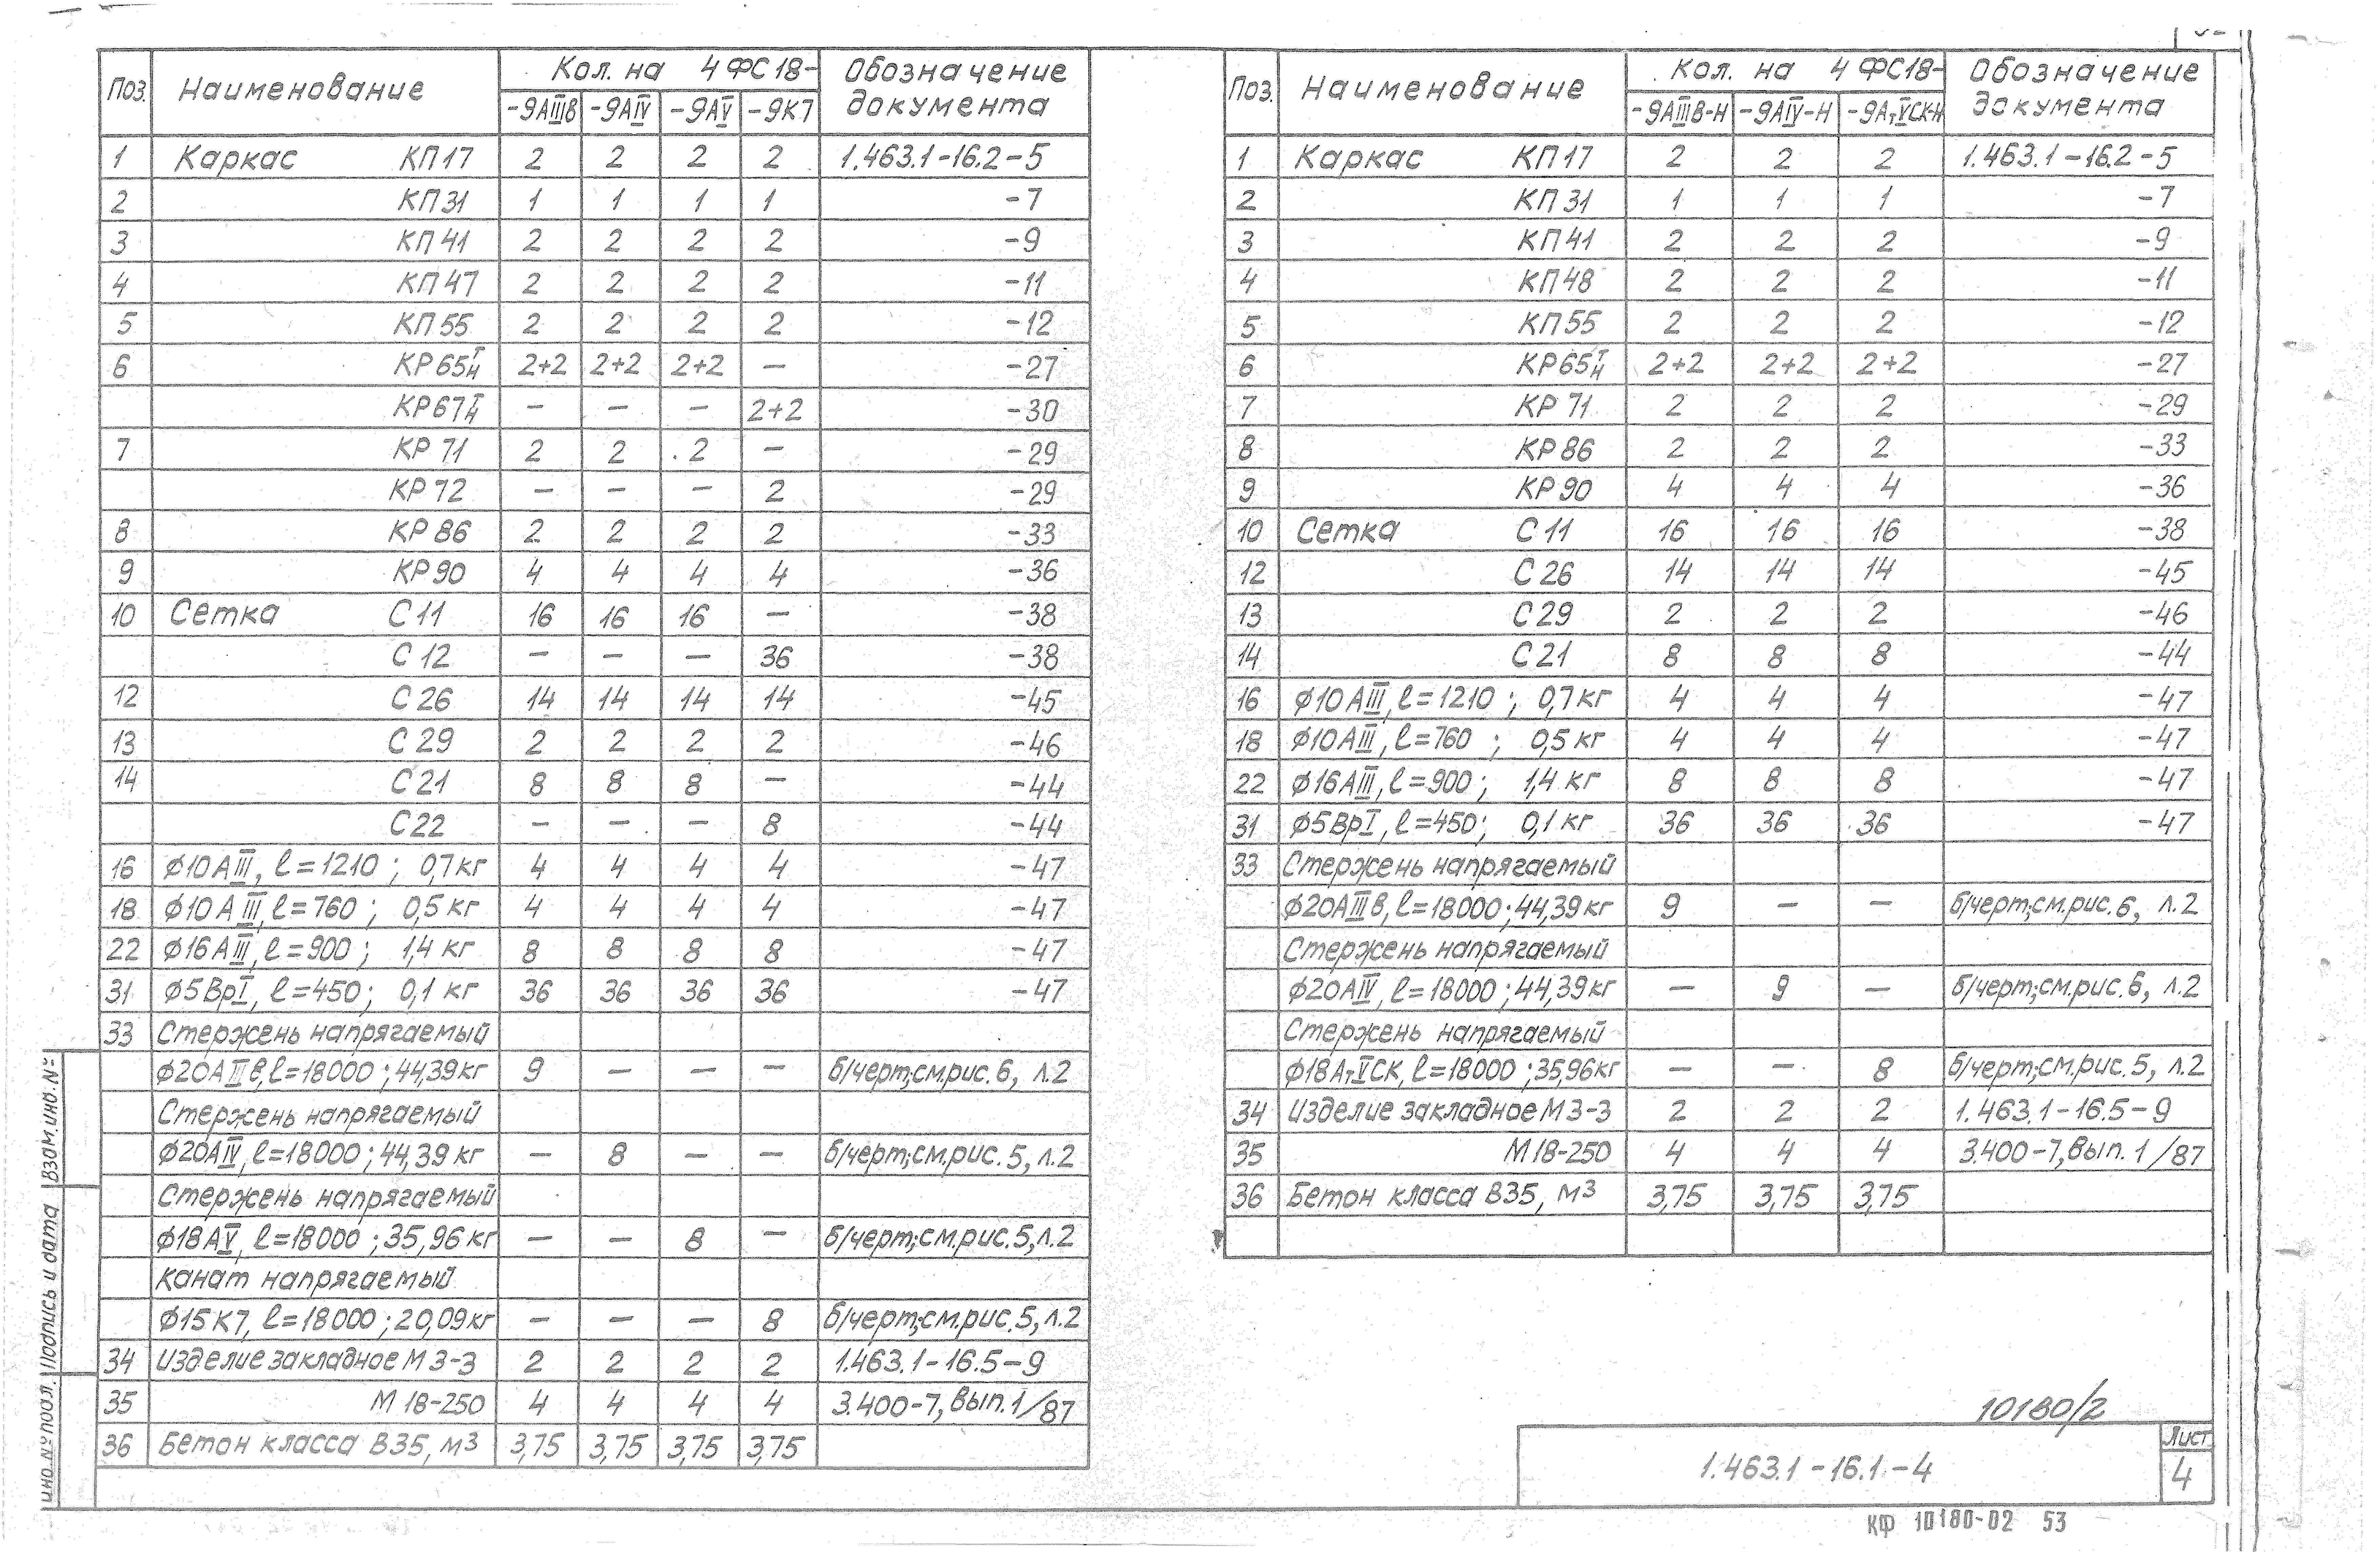 Поз. Наименование Кол. на 4ФС18- Обозначение документа
-9АIIIв -9АIV -9АV -9К7
1 Каркас КП17 2 2 2 2 1.463.1-16.2-5
2 КП31 1 1 1 1 -7
3 КП41 2 2 2 2 -9
4 КП47 2 2 2 2 -11
5 КП55 2 2 2 2 -12
6 КР65 Т/Н 2+2 2+2 2+2 — -27
КР67 Т/Н — — — 2+2 -30
7 КР71 2 2 2 — -29
КР72 — — — 2 -29
8 КР86 2 2 2 2 -33
9 КР90 4 4 4 4 -36
10 Сетка С11 16 16 16 — -38
С12 — — — 36 -38
12 С26 14 14 14 14 -45
13 С29 2 2 2 2 -46
14 С21 8 8 8 — -44
С22 — — — 8 -44
16 ϕ10АIII, ℓ=1210; 0,7кг 4 4 4 4 -47
18 ϕ10АIII, ℓ=760; 0,5кг 4 4 4 4 -47
22 ϕ16АIII, ℓ=900; 1,4кг 8 8 8 8 -47
31 ϕ5ВрI, ℓ=450; 0,1кг 36 36 36 36 -47
33 Стержень напрягаемый
ϕ20АIIIв, ℓ=18000; 44,39кг 9 — — — б/черт; см.рис.6, л.2
Стержень напрягаемый
ϕ20АIV, ℓ=18000; 44,39кг — 8 — — б/черт; см.рис.5, л.2
Стержень напрягаемый
ϕ18АV, ℓ=18000; 35,96кг — — 8 — б/черт; см.рис.5, л.2
Канат напрягаемый
ϕ15К7, ℓ=18000; 20,09кг — — — 8 б/черт; см.рис.5, л.2
34 Изделие закладное М3-3 2 2 2 2 1.463.1-16.5-9
35 М18-250 4 4 4 4 3.400-7, вып.1/87
36 Бетон класса В35, м3 3,75 3,75 3,75 3,75
Поз. Наименование Кол. на 4ФС18- Обозначение документа
-9АIIIв-Н -9АIV-Н -9АтVСК-Н
1 Каркас КП17 2 2 2 1.463.1-16.2-5
2 КП31 1 1 1 -7
3 КП41 2 2 2 -9
4 КП48 2 2 2 -11
5 КП55 2 2 2 -12
6 КР65 Т/Н 2+2 2+2 2+2 -27
7 КР71 2 2 2 -29
8 КР86 2 2 2 -33
9 КР90 4 4 4 -36
10 Сетка С11 16 16 16 -38
12 С26 14 14 14 -45
13 С29 2 2 2 -46
14 С21 8 8 8 -44
16 ϕ10АIII, ℓ=1210; 0,7кг 4 4 4 -47
18 ϕ10АIII, ℓ=760; 0,5кг 4 4 4 -47
22 ϕ16АIII, ℓ=900; 1,4кг 8 8 8 -47
31 ϕ5ВрI, ℓ=450; 0,1кг 36 36 36 -47
33 Стержень напрягаемый
ϕ20АIIIв, ℓ=18000; 44,39кг 9 — — б/черт; см.рис.6, л.2
Стержень напрягаемый
ϕ20АIV, ℓ=18000; 44,39кг — 9 — б/черт; см.рис.6, л.2
Стержень напрягаемый
ϕ18АтVСК, ℓ=18000; 35,96кг — — 8 б/черт; см.рис.5, л.2
34 Изделие закладное М3-3 2 2 2 1.463.1-16.5-9
35 М18-250 4 4 4 3.400-7, вып.1/87
36 Бетон класса В35, м3 3,75 3,75 3,75
10180/2
1.463.1-16.1-4
Лист
4
КФ 10180-02 53
Инв.№ подл. Подпись и дата Взам.инв.№